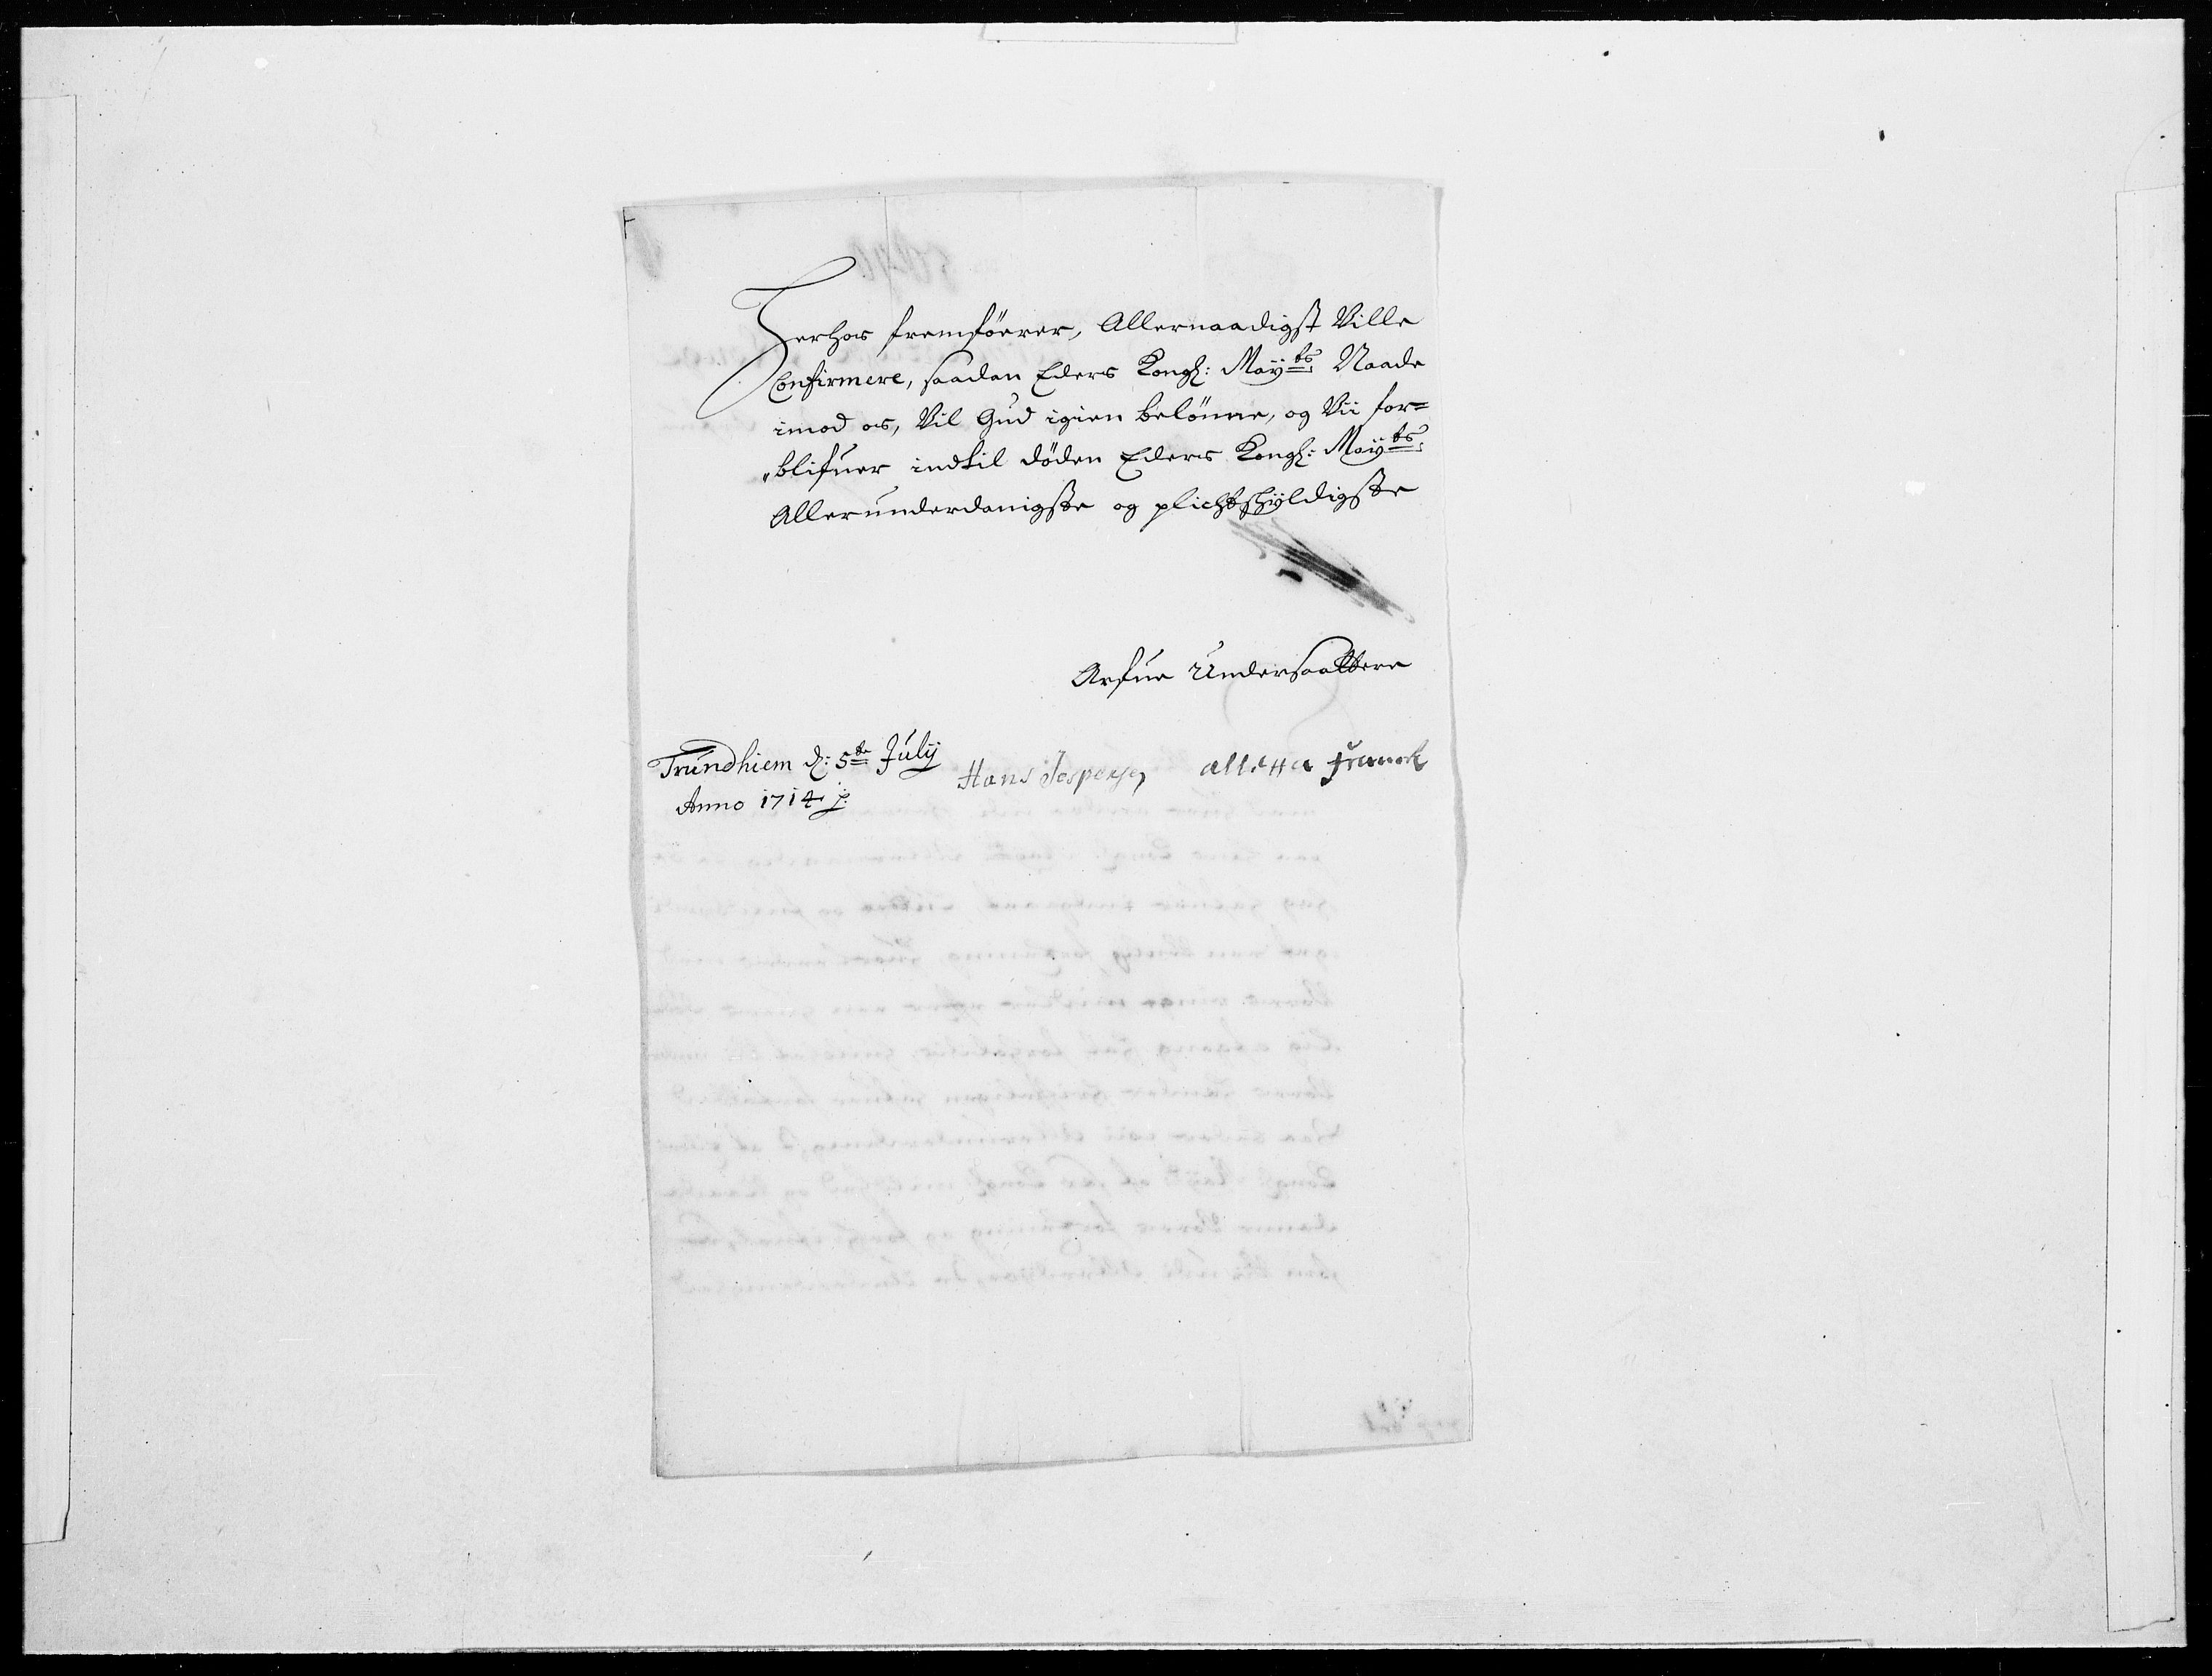 Herhos fremföerer, Allernaadigst Ville
Confirmere, saadan Eders Kongl: Mayts: Naade
imod os, Vil Gud igien belönne, og Vii for=
"blifuer indtil döden Eders Kongl: Mayts:
Allerunderdanigste og plichtskyldigste
Arfue Undersaattere
Trundhiem d: 5te July
Anno 1714
Hans Jespersen
alletta Franck